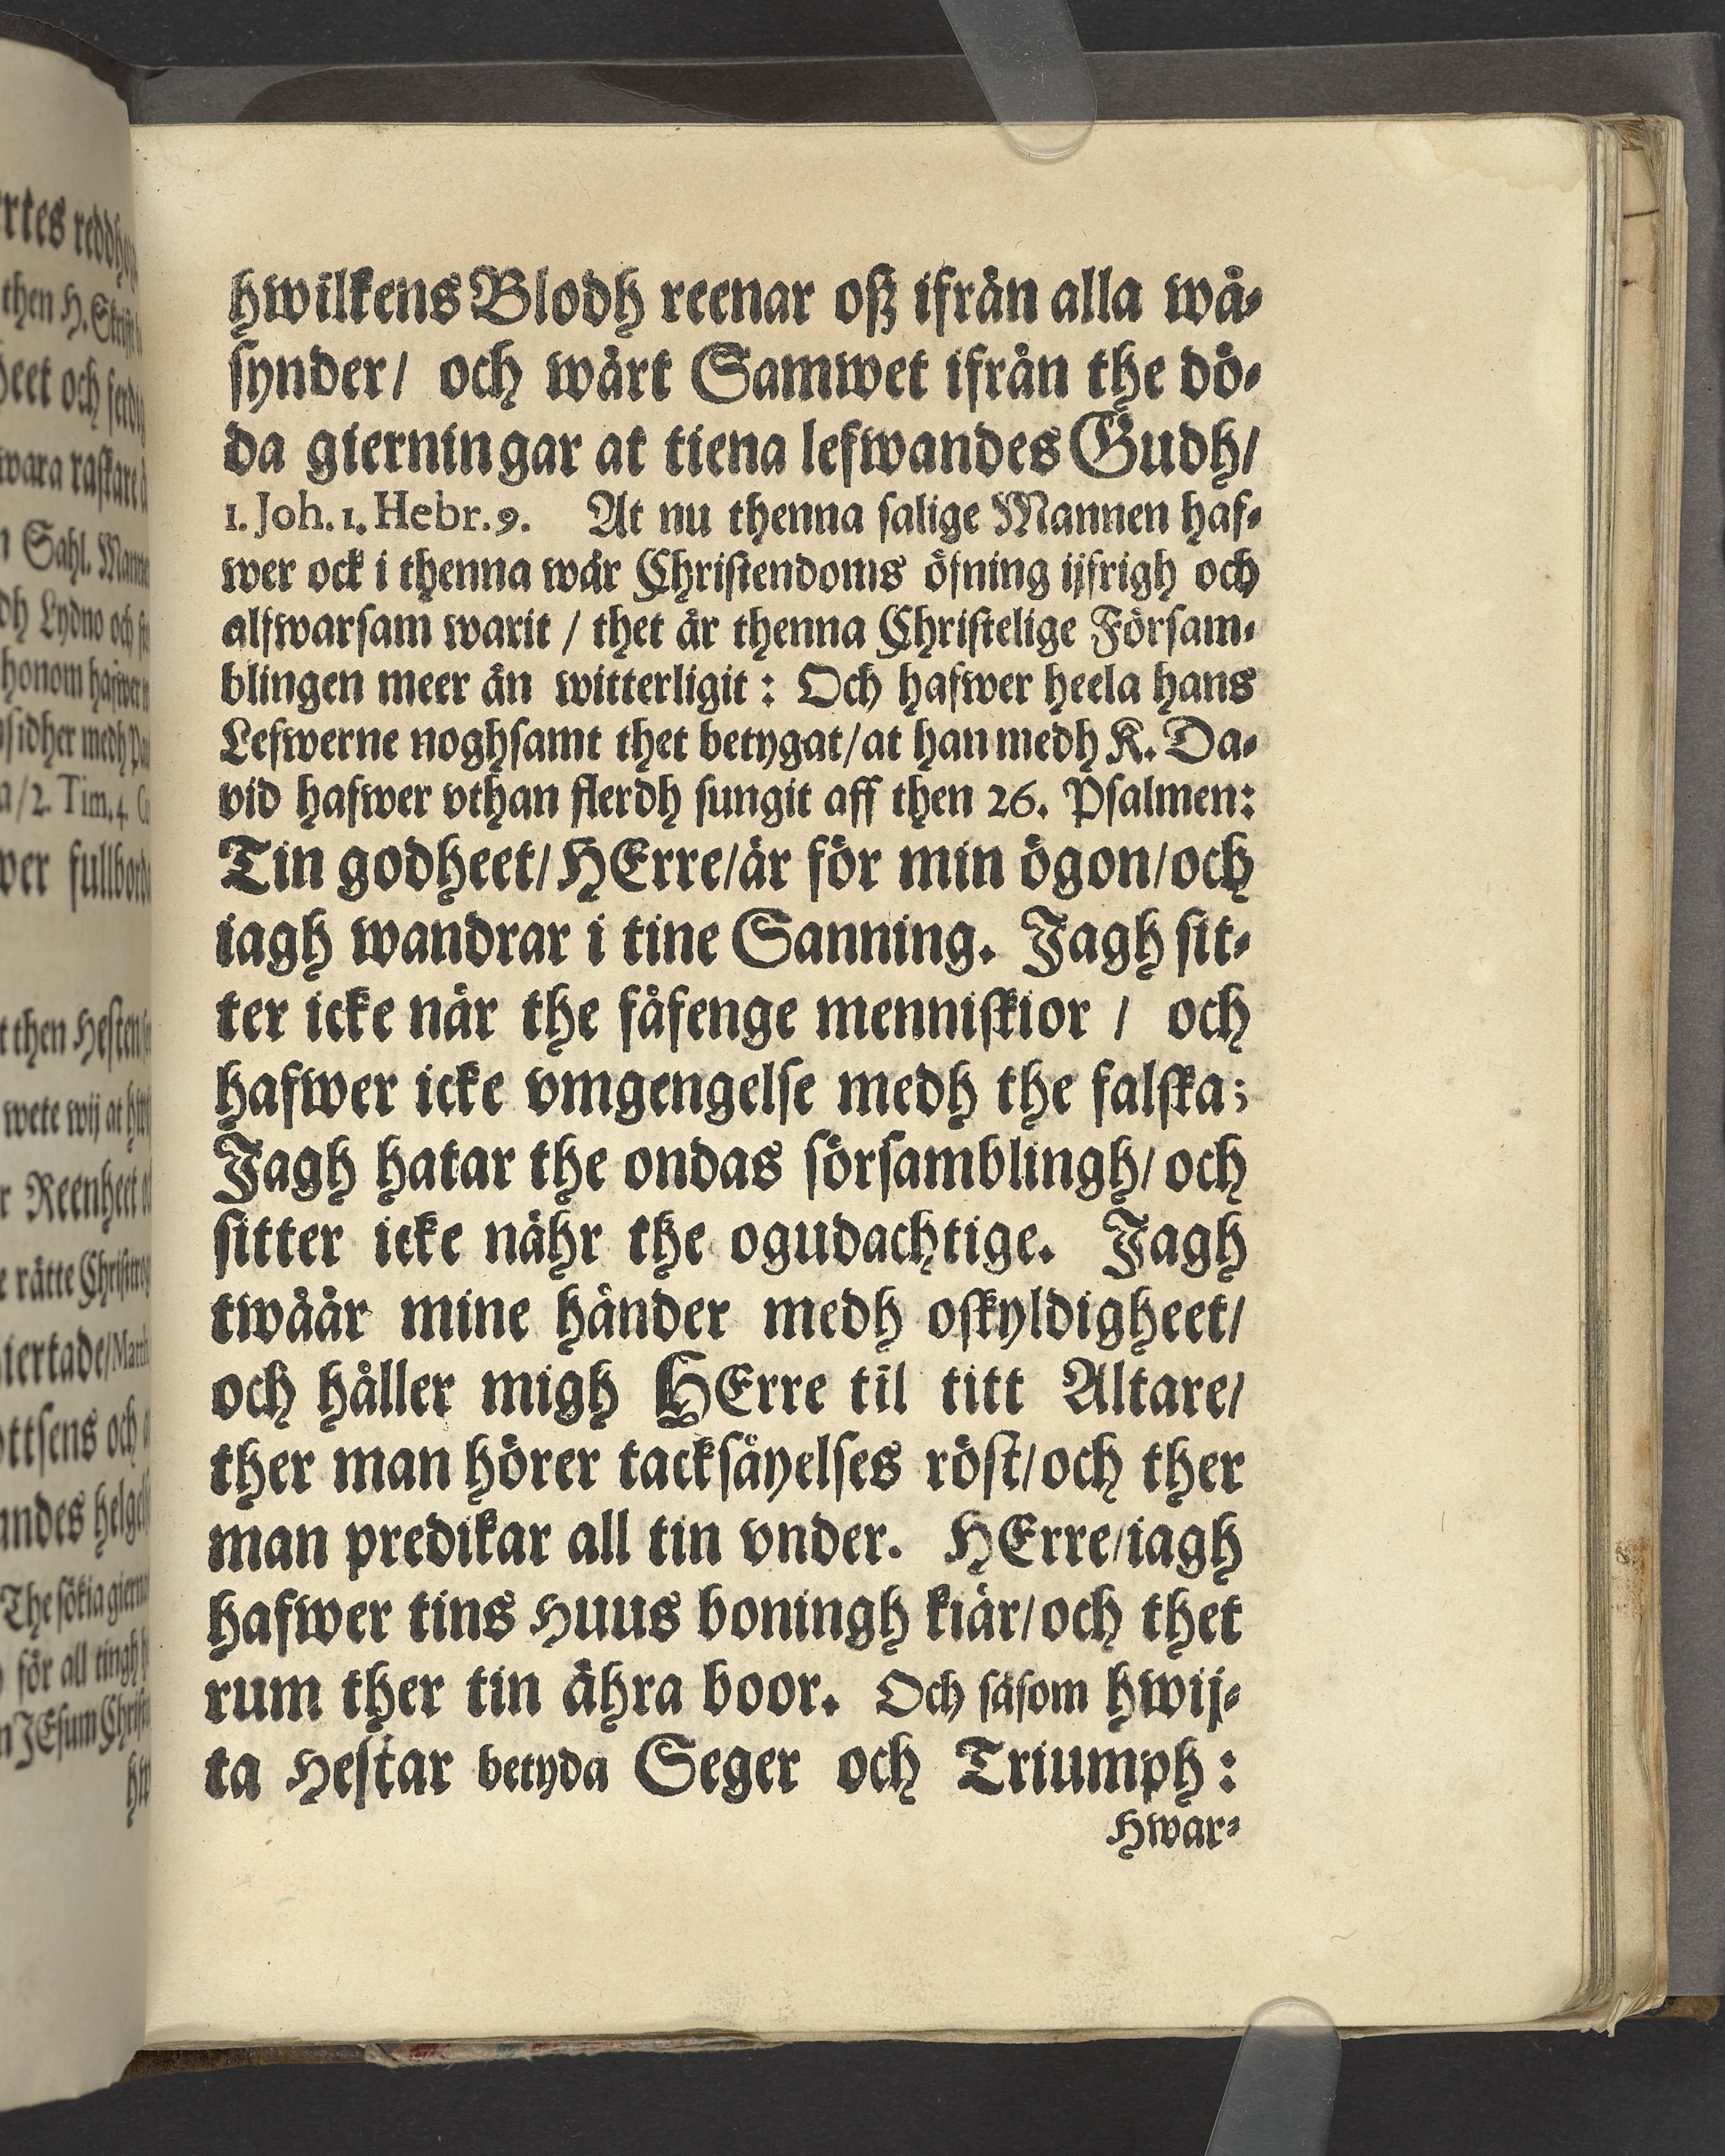 hwilkens Blodh reenar oß ifrån alla wå-
synder/ och wårt Samwet ifrån the dö-
da gierningar at tiena lefwandes Gudh/
1. Joh. 1. Hebr. 9. At nu thenna salige Mannen haf-
wer ock i thenna wår Christendoms öfning ijfrigh och
alfwarsam warit / thet är thenna Christelige Försam-
blingen meer än witterligit : Och hafwer heela hans
Lefwerne noghsamt thet betygat/at han medh K. Da-
vid hafwer vthan flerdh sungit aff then 26. Psalmen:
Tin godheet/HErre/är för min ögon/och
iagh wandrar i tine Sanning. Jagh sit-
ter icke när the fåfenge menniskior / och
hafwer icke vmgengelse medh the falska;
Jagh hatar the ondas församblingh/och
sitter icke nähr the ogudachtige. Jagh
twåär mine händer medh oskyldigheet/
och håller migh HErre til titt Altare/
ther man hörer tacksäyelses röst/och ther
man predikar all tin vnder. HErre/iagh
hafwer tins Huus boningh kiär/och thet
rum ther tin ähra boor. Och såsom hwij-
ta Hestar betyda Seger och Triumph :
Hwar-